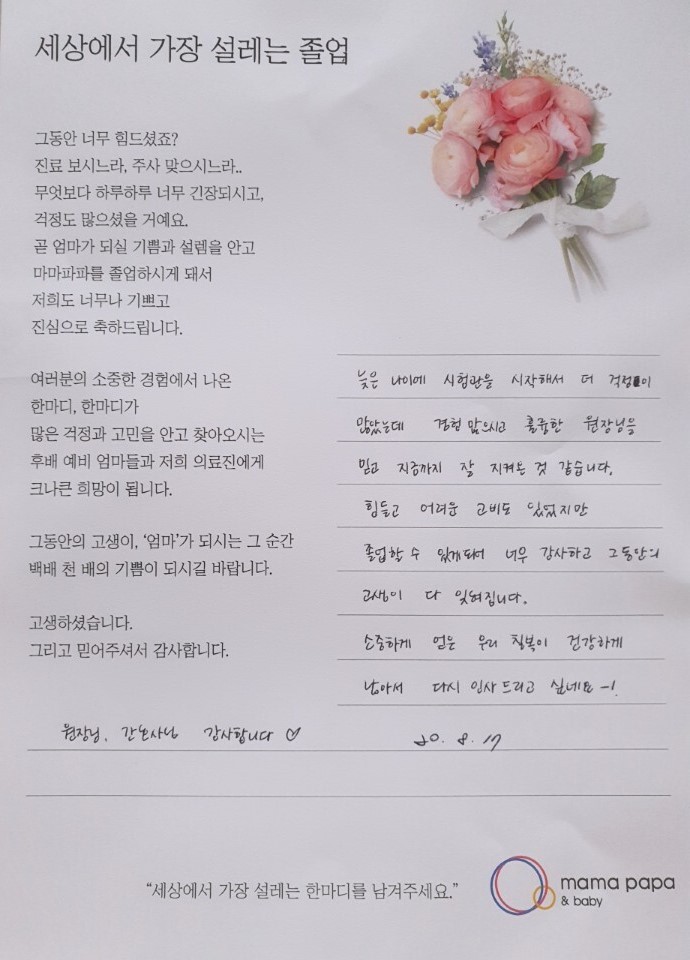 세상에서 가장 설레는 졸업
그동안 너무 힘드셨죠?
진료 보시느라, 주사 맞으시느라..
무엇보다 하루하루 너무 긴장되시고,
걱정도 많으셨을 거예요.
곧 엄마가 되실 기쁨과 설렘을 안고
마마파파를 졸업하시게 돼서
저희도 너무나 기쁘고
진심으로 축하드립니다.
여러분의 소중한 경험에서 나온
한마디, 한마디가
많은 걱정과 고민을 안고 찾아오시는
후배 예비 엄마들과 저희 의료진에게
크나큰 희망이 됩니다.
그동안의 고생이, ‘엄마’가 되시는 그 순간
백배 천 배의 기쁨이 되시길 바랍니다.
고생하셨습니다.
그리고 믿어주셔서 감사합니다.
늦은 나이에 시험관을 시작해서 더 걱정이
많았는데 경험 많으시고 훌륭한 원장님을
믿고 지금까지 잘 지켜온 것 같습니다.
힘들고 어려운 고비도 있었지만
졸업할 수 있게되어 너무 감사하고 그동안의
고생이 다 잊혀집니다.
소중하게 얻은 우리 칠복이 건강하게
낳아서 다시 인사드리고 싶네요~!
원장님, 간호사님 감사합니다 ♡
20. 8. 17
“세상에서 가장 설레는 한마디를 남겨주세요.”
mama papa
& baby